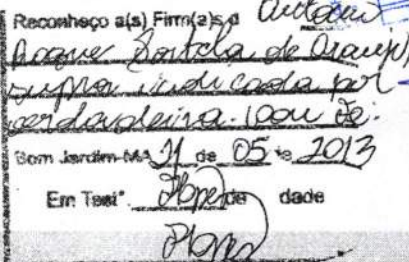 Reconheço a(s) Firm(a)s d Antoni
Roque Portela de Araujo,
supra indicada por
verdadeira. Dou Fé.
Bom Jardim-MA 21 de 05 de 2013
Em Test° da dade